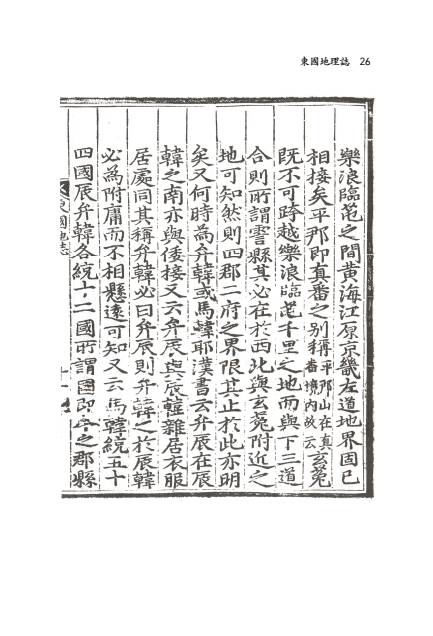 東國地理誌 26
樂浪臨芚之間黃海江原京畿左道地界固已
相接矣平那即真番之別稱平那山在真番境內故云玄菟
既不可跨越樂浪臨芚千里之地而與下三道
合則所謂霅縣其必在於西北與玄菟附近之
地可知然則四郡二府之界限其止於此亦明
矣又何時為弁韓或馬韓耶漢書云弁辰在辰
韓之南亦與倭接又云弁辰與辰韓雜居衣服
居處同其稱弁韓必曰弁辰則弁韓之於辰韓
必為附庸而不相懸遠可知又云馬韓統五十
四國辰弁韓各統十二國所謂國即今之郡縣
東國地誌
十一